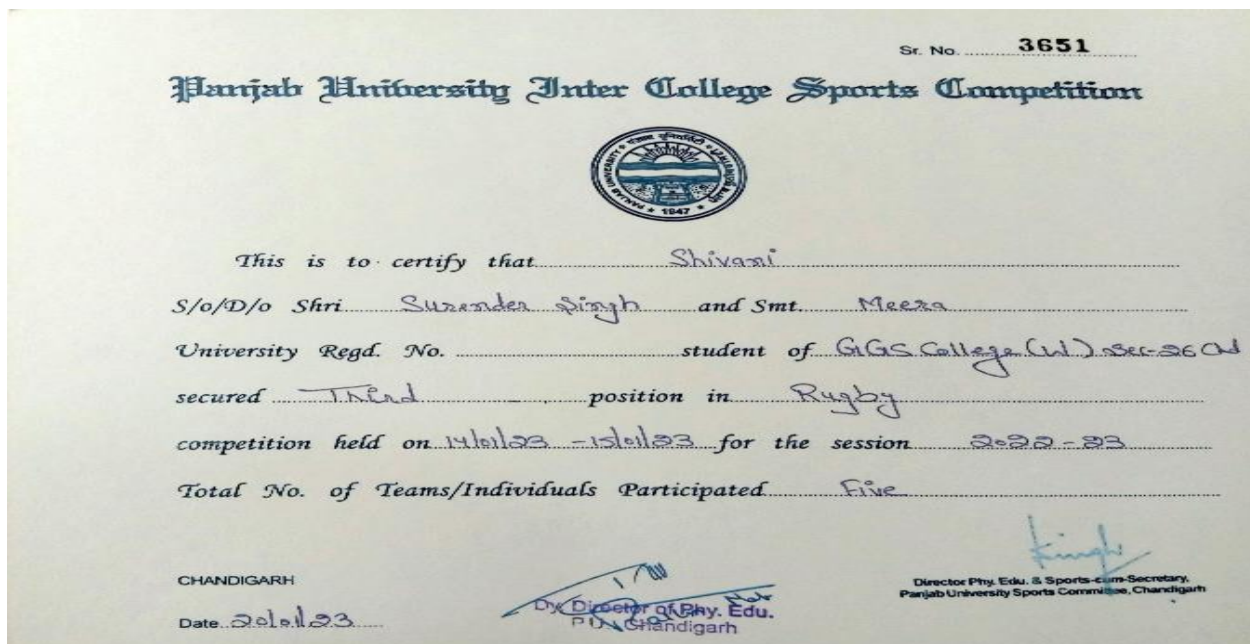 Sr. No. 3651
Panjab University Inter College Sports Competition
PANJAB UNIVERSITY
1947
This is to certify that Shivani
S/o/D/o Shri Surender Singh and Smt. Meera
University Regd. No. student of GGS College (W) Sec-26 Chd
secured Third position in Rugby
competition held on 14/01/23 - 15/01/23 for the session 2022-23
Total No. of Teams/Individuals Participated Five
CHANDIGARH
Date 20/01/23
Dy. Director of Phy. Edu.
P.U. Chandigarh
Director Phy. Edu. & Sports-cum-Secretary,
Panjab University Sports Committee, Chandigarh